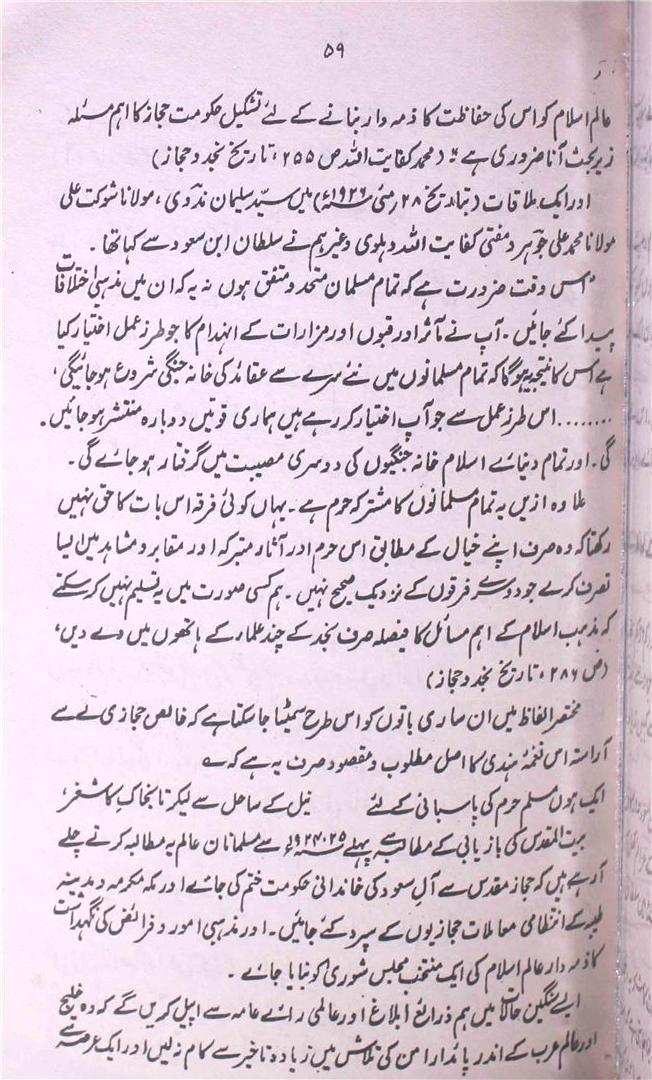 ۵۹
عالم اسلام کو اس کی حفاظت کا ذمہ دار بنانے کے لئے تشکیل حکومت حجاز کا اہم مسئلہ
زیر بحث آنا ضروری ہے ؛ (محمد کفایت اللہ ص ۲۵۵، تاریخ نجد و حجاز)
اور ایک ملاقات (بتاریخ ۲۸ مئی ۱۹۲۶ء) میں سید سلیمان ندوی، مولانا شوکت علی
مولانا محمد علی جوہر و مفتی کفایت اللہ دہلوی وغیرہم نے سلطان ابن سعود سے کہا تھا ۔
"اس وقت ضرورت ہے کہ تمام مسلمان متحد و متفق ہوں نہ یہ کہ ان میں مذہبی اختلافات
پیدا کئے جائیں ۔ آپ نے مآثر اور قبوں اور مزارات کے انہدام کا جو طرز عمل اختیار کیا
ہے اس کا نتیجہ یہ ہوگا کہ تمام مسلمانوں میں نئے سرے سے عقائد کی خانہ جنگی شروع ہو جائیگی،
........ اس طرز عمل سے جو آپ اختیار کر رہے ہیں ہماری قوتیں دوبارہ منتشر ہو جائیں ۔
گی ۔ اور تمام دنیائے اسلام خانہ جنگیوں کی دوسری مصیبت میں گرفتار ہو جائے گی ۔
علاوہ ازیں یہ تمام مسلمانوں کا مشترکہ حرم ہے ۔ یہاں کوئی فرقہ اس بات کا حق نہیں
رکھتا کہ وہ صرف اپنے خیال کے مطابق اس حرم اور آثار متبرکہ اور مقابر و مشاہد میں ایسا
تصرف کرے جو دوسرے فرقوں کے نزدیک صحیح نہیں ۔ ہم کسی صورت میں یہ تسلیم نہیں کر سکتے
کہ مذہب اسلام کے اہم مسائل کا فیصلہ صرف نجد کے چند علماء کے ہاتھوں میں دے دیں،
(ص ۲۸۶، تاریخ نجد و حجاز)
مختصر الفاظ میں ان ساری باتوں کو اس طرح سمیٹا جا سکتا ہے کہ خالص حجازی لے سے
آراستہ اس نغمۂ ہندی کا اصل مطلوب و مقصود صرف یہ ہے کہ ؎
ایک ہوں مسلم حرم کی پاسبانی کے لئے نیل کے ساحل سے لیکر تا بخاکِ کاشغر،
بیت المقدس کی بازیابی کے مطالبہ سے پہلے ۲۵-۱۹۲۴ء سے مسلمانان عالم یہ مطالبہ کرتے چلے
آ رہے ہیں کہ حجاز مقدس سے آل سعود کی خاندانی حکومت ختم کی جائے اور مکہ مکرمہ و مدینہ
طیبہ کے انتظامی معاملات حجازیوں کے سپرد کئے جائیں ۔ اور مذہبی امور و فرائض کی نگہداشت
کا ذمہ دار عالم اسلام کی ایک منتخب مجلس شوریٰ کو بنایا جائے ۔
ایسے سنگین حالات میں ہم ذرائع ابلاغ اور عالمی رائے عامہ سے اپیل کریں گے کہ وہ خلیج
اور عالم عرب کے اندر پائدار امن کی تلاش میں زیادہ تاخیر سے کام نہ لیں اور ایک عرصہ سے